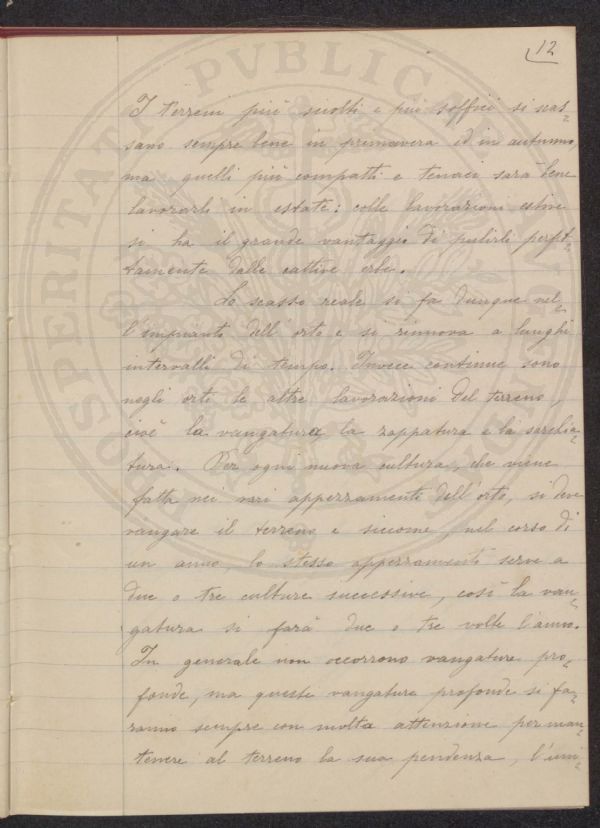 12
I terreni più sciolti e più soffici si scas=
sano sempre bene in primavera ed in autunno,
ma quelli più compatti e tenaci sarà bene
lavorarli in estate: colle lavorazioni estive
si ha il grande vantaggio di pulirli perfet=
tamente dalle cattive erbe.
Lo scasso reale si fa dunque nel=
l'impianto dell'orto e si rinnova a lunghi
intervalli di tempo. Invece continue sono
negli orti le altre lavorazioni del terreno,
cioè la vangatura la zappatura e la sarchia=
tura. Per ogni nuova cultura, che viene
fatta nei vari appezzamenti dell'orto, si deve
vangare il terreno e siccome, nel corso di
un anno, lo stesso appezzamento serve a
due o tre culture successive, così la van=
gatura si farà due o tre volte l'anno.
In generale non occorrono vangature pro=
fonde, ma queste vangature profonde si fa=
ranno sempre con molta attenzione per man=
tenere al terreno la sua pendenza, l'uni=
PROSPERITATI PVBLICAE